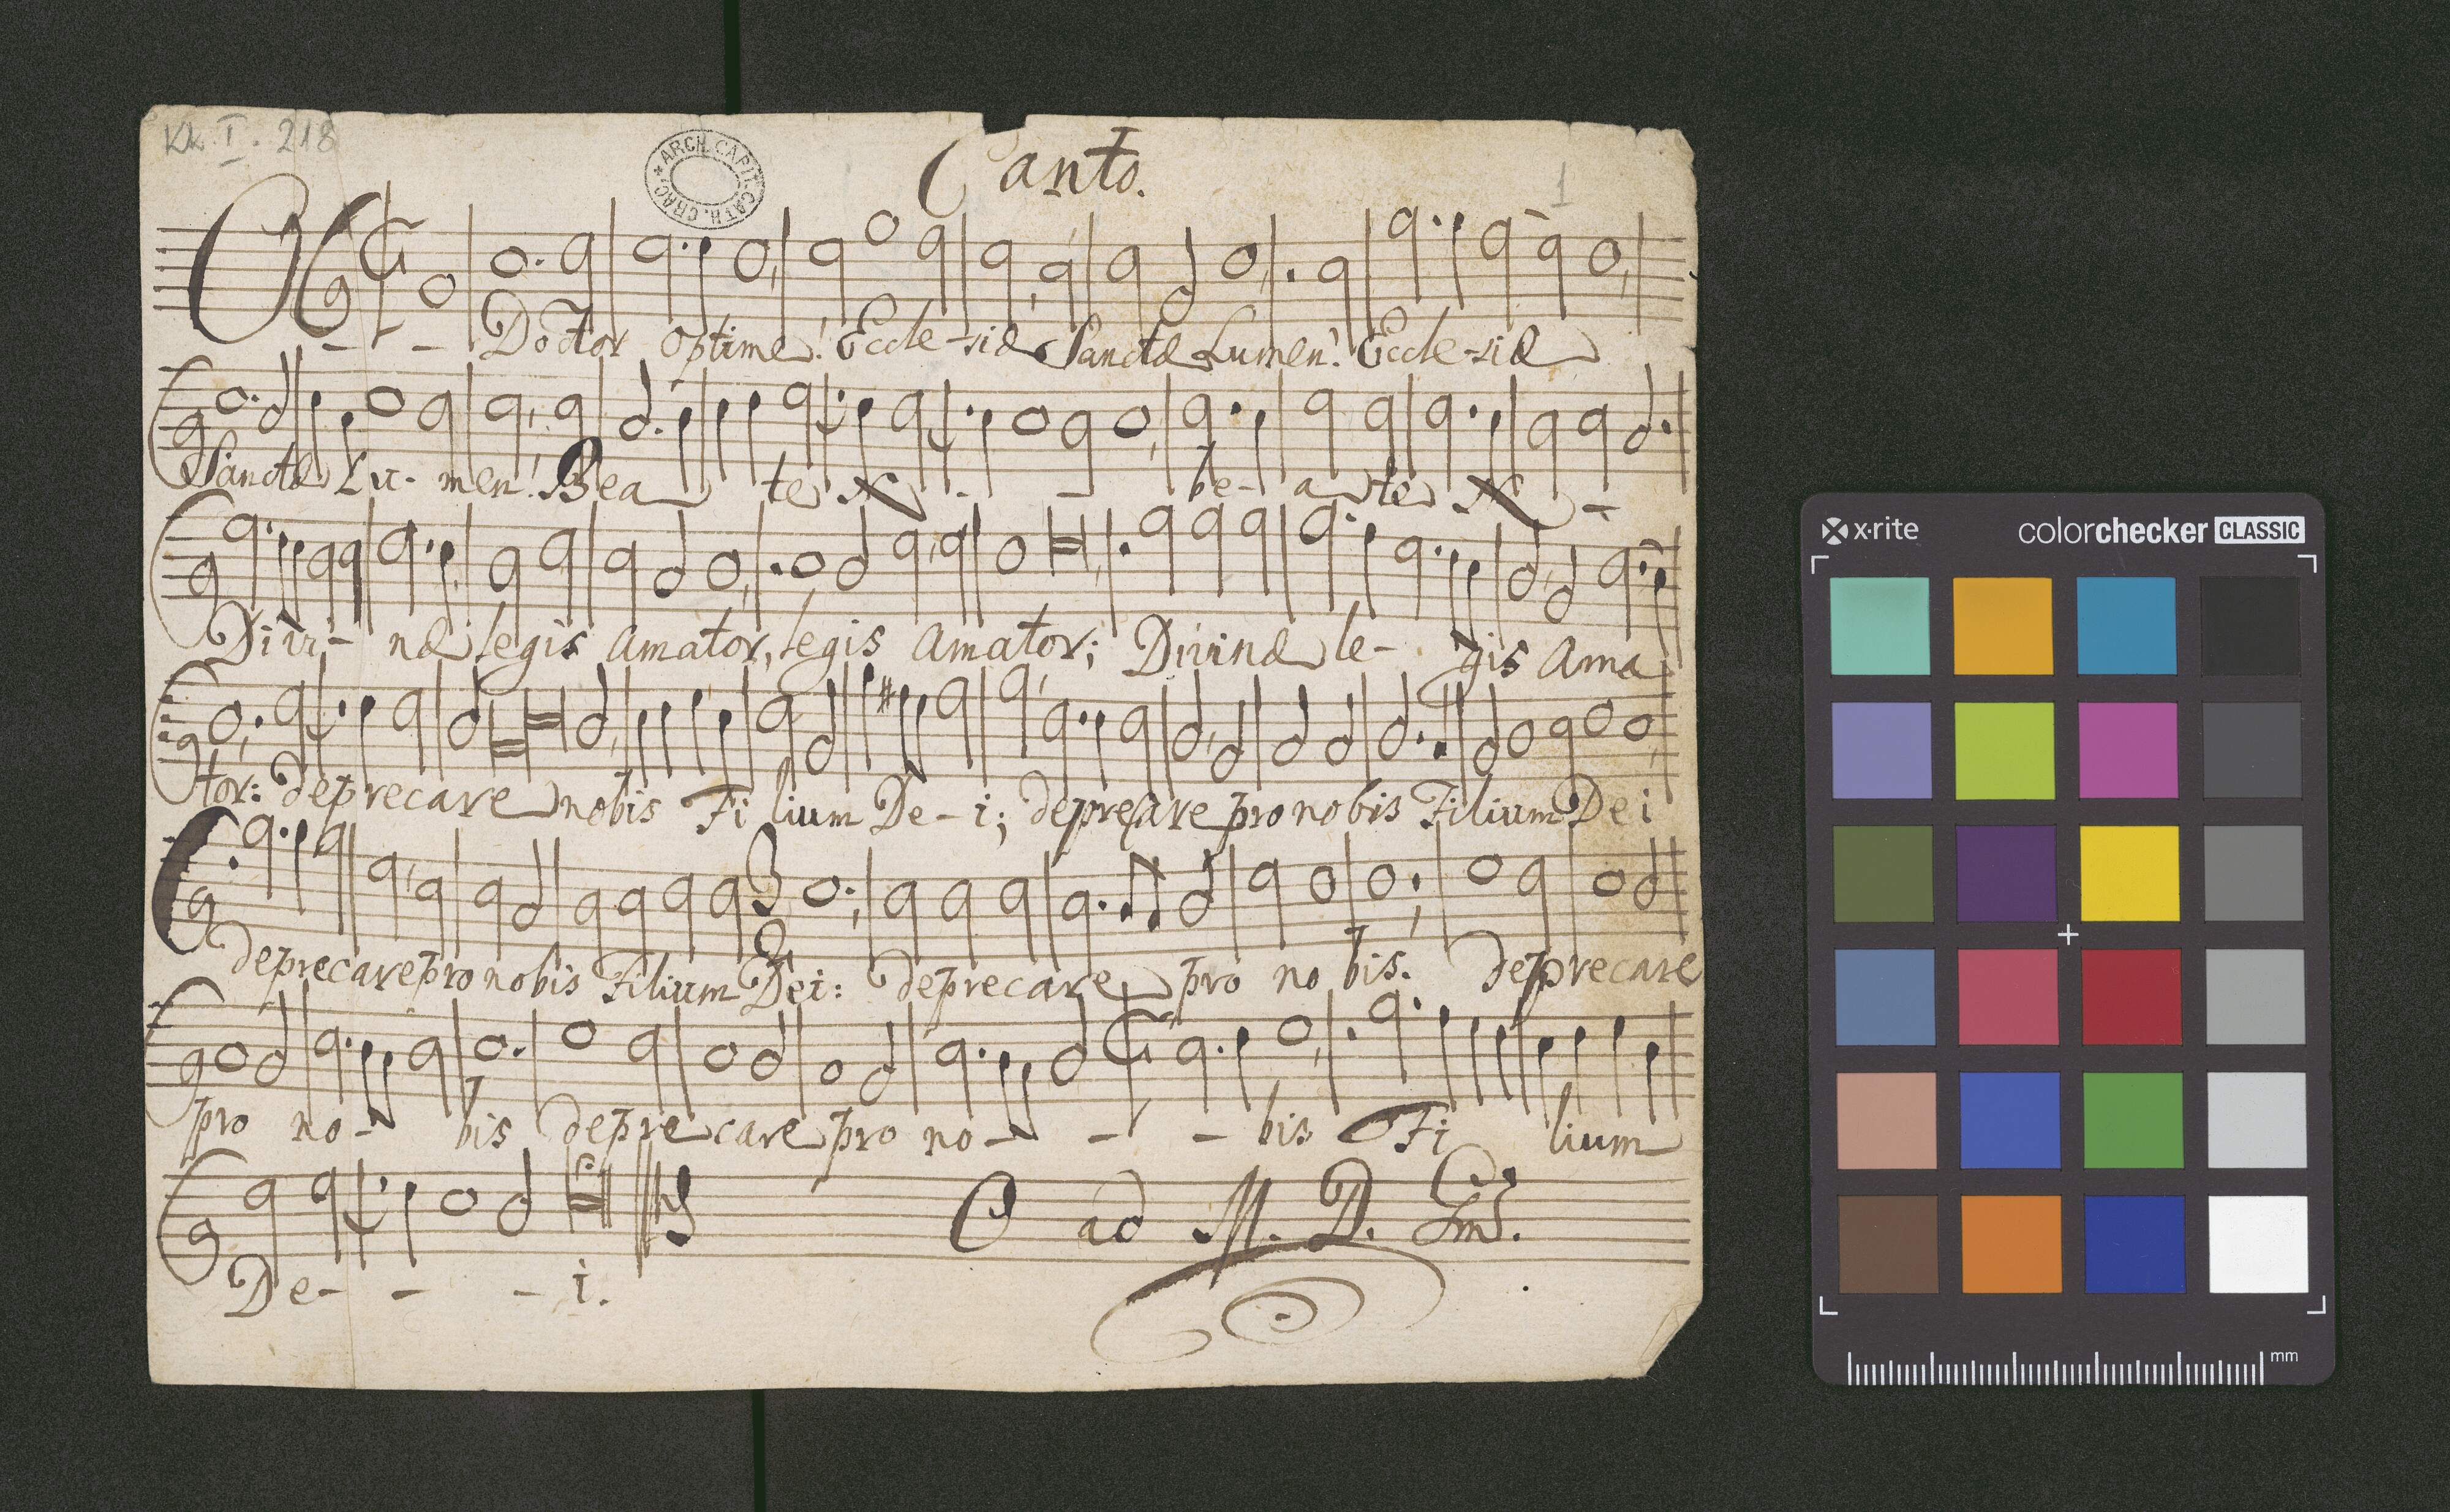 Kk. I. 218
ARCH. CAPIT. CATH. CRAC.
Canto.
1
O - - Doctor optime! Eccle-siæ Sanctæ Lumen! Eccle-siæ
Sanctæ Lu- men! Bea te N - - be- a te N -
Divi- næ legis amator, legis amator; Divinæ le- gis Ama
tor: deprecare nobis Fi lium De- i; deprecare pro nobis Filium Dei
deprecare pro nobis Filium Dei: deprecare pro no bis. deprecare
pro no- bis deprecare pro no- - - bis Fi lium
De- - - i.
O ad M. D. G.
x·rite
colorchecker CLASSIC
mm